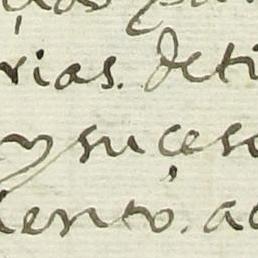 rias. de ti
y suçeso
lento. ac